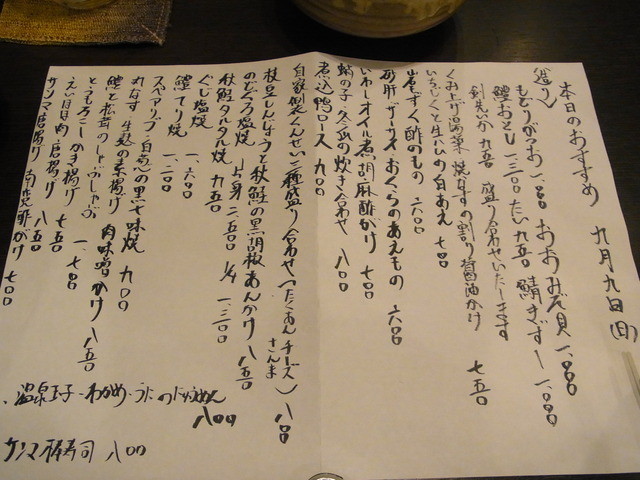 本日のおすすめ 九月九日(日)
造り
もどりがつお 一、000 おおみぞ貝 一、000
鱧おとし 一、三00 たい 九五0 鯖きずし 一、000
剣先いか 九五0 盛り合わせいたします
くみ上げ湯葉 焼なすの割り醤油かけ 七五0
いちじくと生ハムの白あえ 七00
岩もずく酢のもの 六00
砂肝 ザーサイ おくらのあえもの 六00
いわしオイル煮 胡麻酢かけ 七00
鯛の子 冬瓜の炊き合わせ 八00
煮込鴨ロース 九00
自家製くんせい三種盛り合わせ(たくあん チーズ さんま) 八00
枝豆しんじょうと秋鮭の黒胡椒あんかけ 八五0
のどぐろ塩焼 上身 二、五00 1/4 一、三00
秋鮭タルタル焼 九五0
ぐじ塩焼 一、六00
鱧てり焼 一、二00
スペアリブ 白ねぎの黒七味焼 九00
丸なす 生麩の素揚げ 肉味噌かけ 八五0
鱧と松茸のしゃぶしゃぶ 一、七00
とうもろこしかき揚げ 七五0
えい唐揚げ 八五0
サンマ唐揚げ 南蛮酢がけ 七00
温泉玉子・わかめ・うにのにゅうめん 八00
サンマ棒寿司 八00